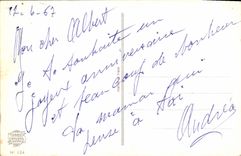 12-6-67
Mon cher Albert
Je te souhaite un
joyeux anniversaire
et beaucoup de bonheur
ta maman qui
pense à toi
Andréa